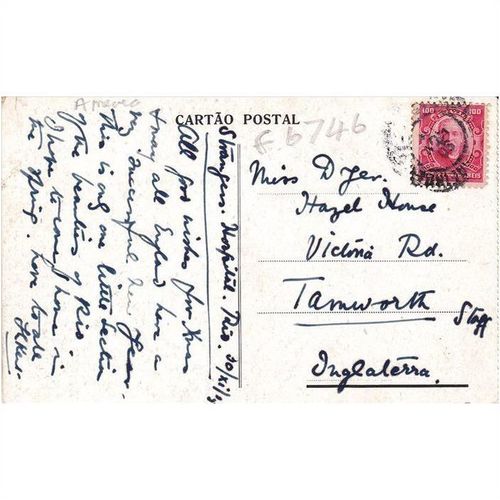 America
CARTÃO POSTAL
£ 6746
100 100
REIS
Strangers Hospital. Rio. 20/XI/
All good wishes for Xmas
& may all England have a
very successful New Year.
This is only one little section
of the beauties of Rio
I hope to come home in
the Spring. Love to all
Miss Dyer.
Hazel House
Victoria Rd.
Tamworth
Staff
Inglaterra.